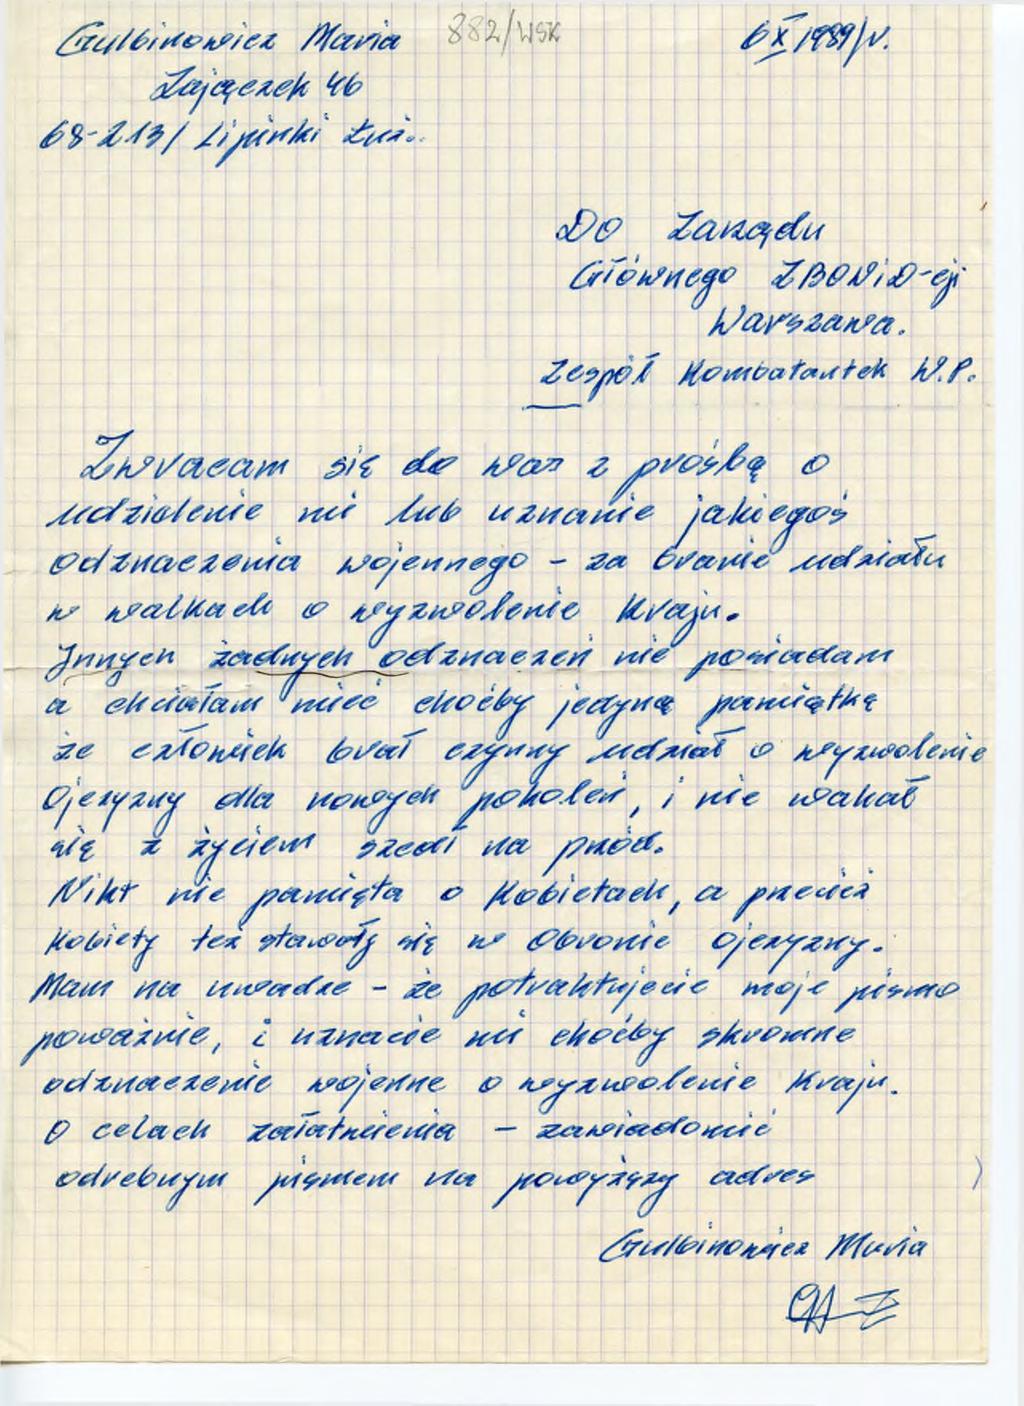 Gulbinowicz Maria 882/WSK 6 X 1989/r.
Zajączek 46
68-213/ Lipinki Łuż..
Do Zarządu
Głównego ZBOWiD-eji
Warszawa.
Zespół Kombatantek W.P.
Zwracam się do was z prośbą o
udzielenie mi lub uznanie jakiegoś
odznaczenia wojennego – za branie udziału
w walkach o wyzwolenie Kraju.
Innych żadnych odznaczeń nie posiadam
a chciałam mieć choćby jedyną pamiątkę
że człowiek brał czynny udział o wyzwolenie
Ojczyzny dla nowych pokoleń, i nie wahał
się z życiem szedł na przód.
Nikt nie pamięta o Kobietach, a przecież
Kobiety też stawały się w Obronie Ojczyzny.
Mam na uwadze – że potraktujecie moje pismo
poważnie, i uznacie mi choćby skromne
odznaczenie wojenne o wyzwolenie Kraju.
O celach załatnienia – zawiadomić
odrebnym pismem na powyższy adres
Gulbinowicz Maria